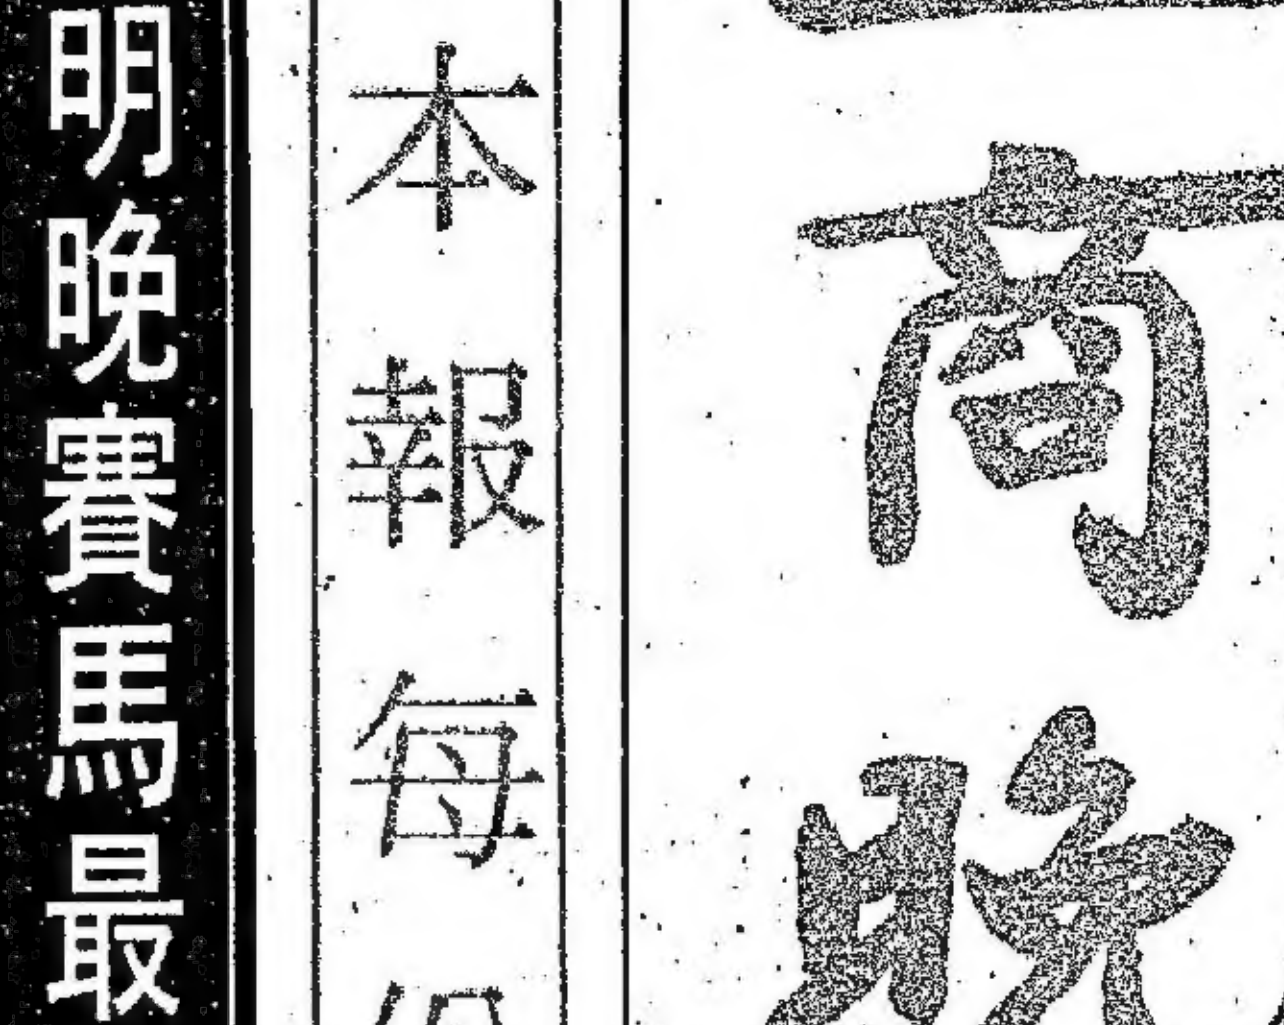 商晚
本報每
明晚賽馬最